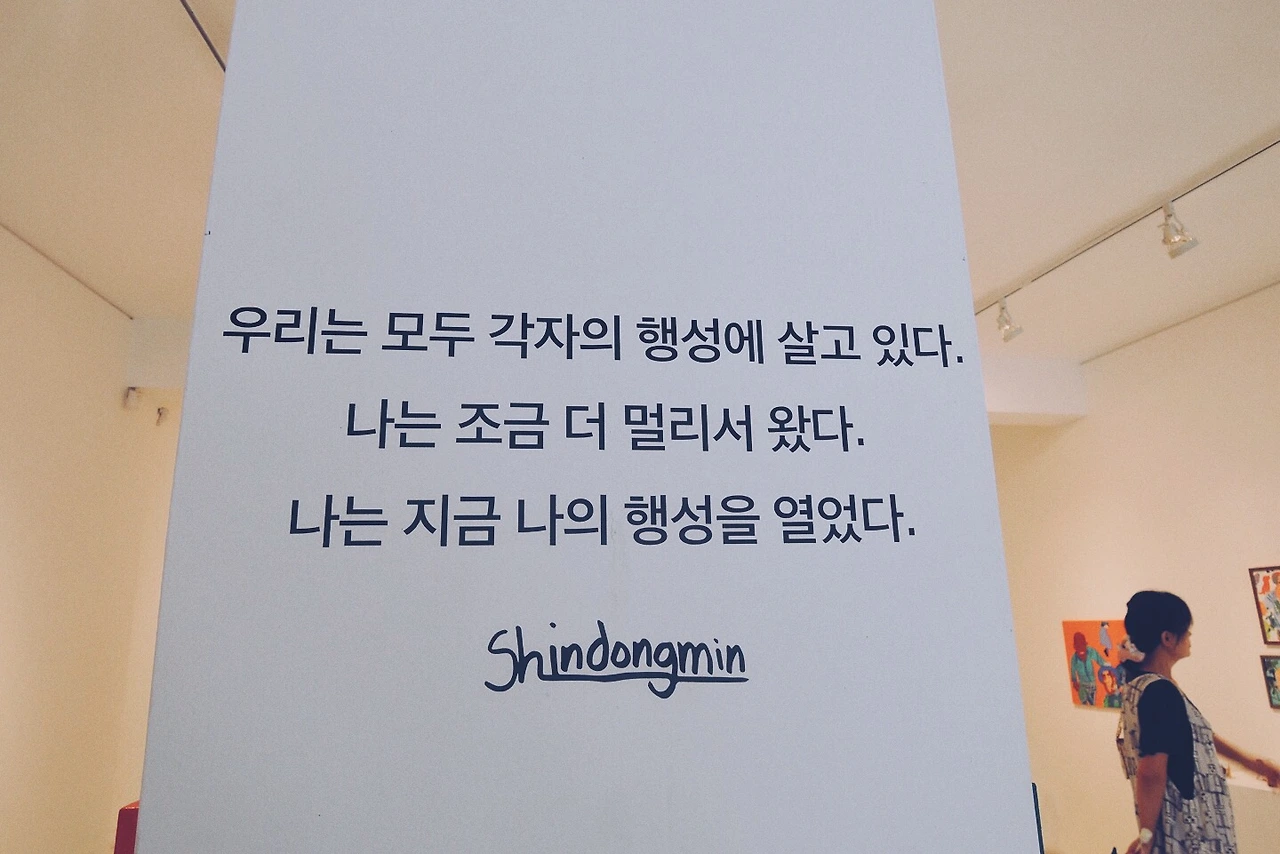 우리는 모두 각자의 행성에 살고 있다.
나는 조금 더 멀리서 왔다.
나는 지금 나의 행성을 열었다.
Shindongmin